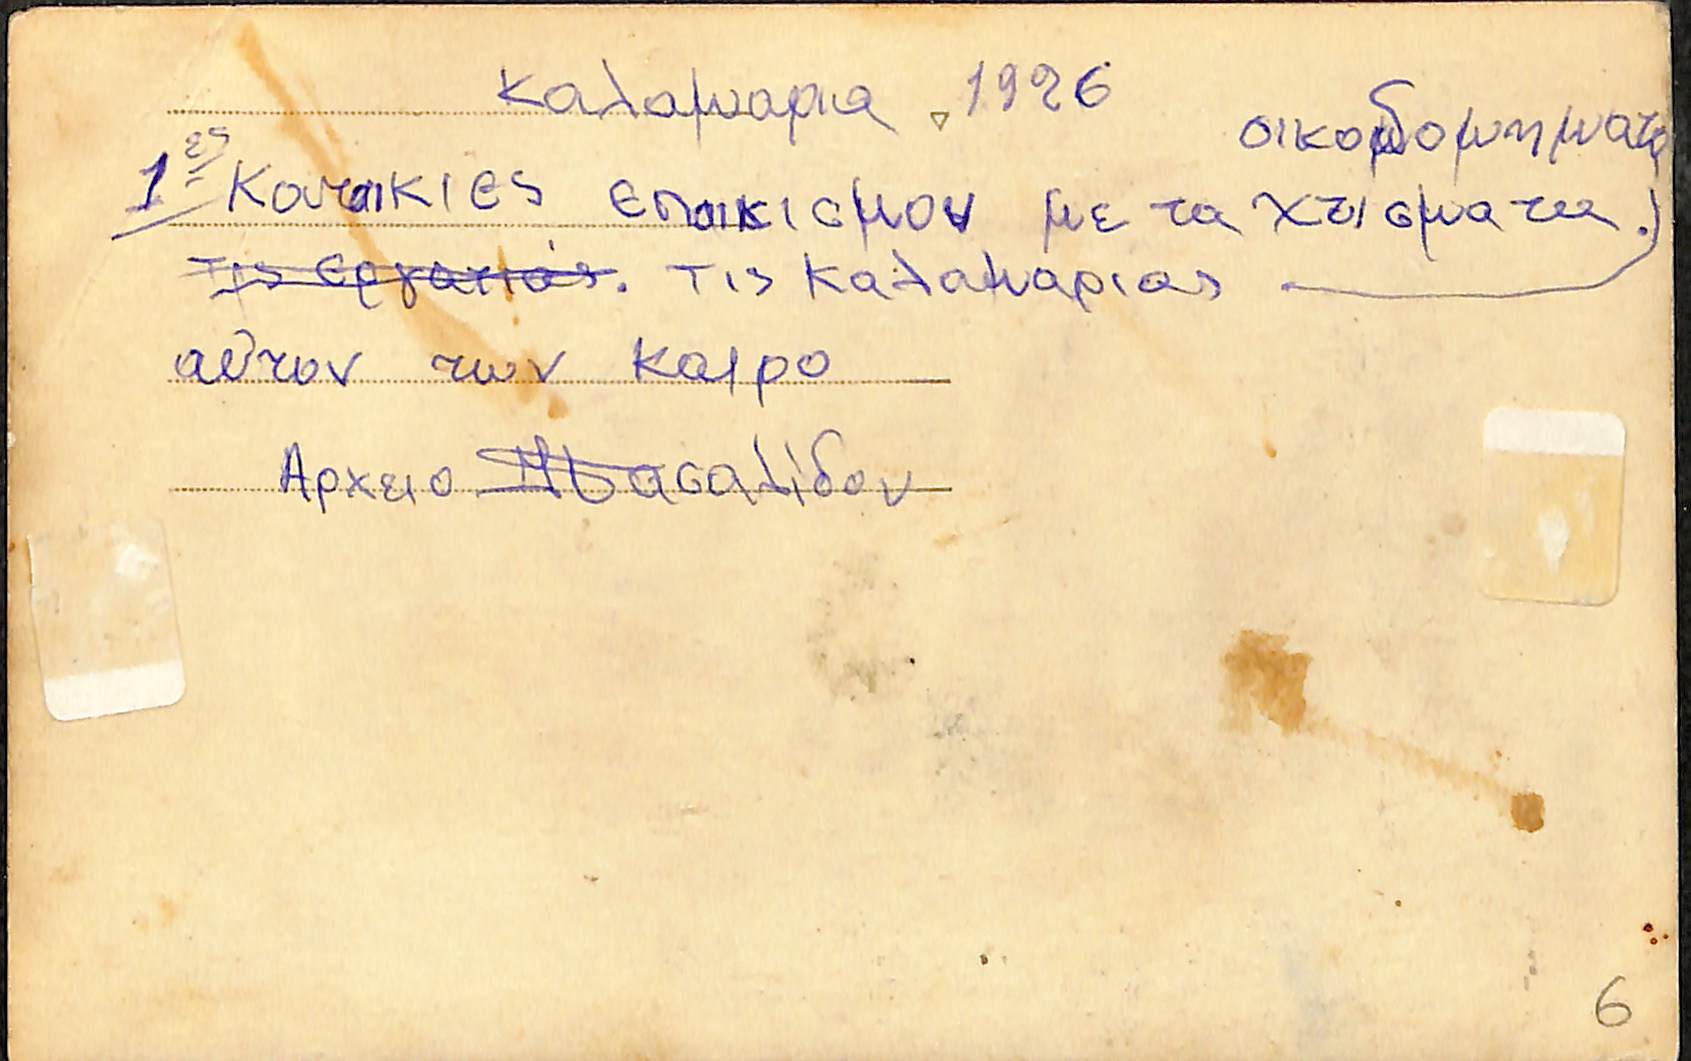 Καλαμαρια 1926
οικοδομηματα
1ες Κατοικιες εποικισμου με τα χτισματα.
τις εργατιάς. τις Καλαμαριας
αύτον των καιρο
Αρχειο
6